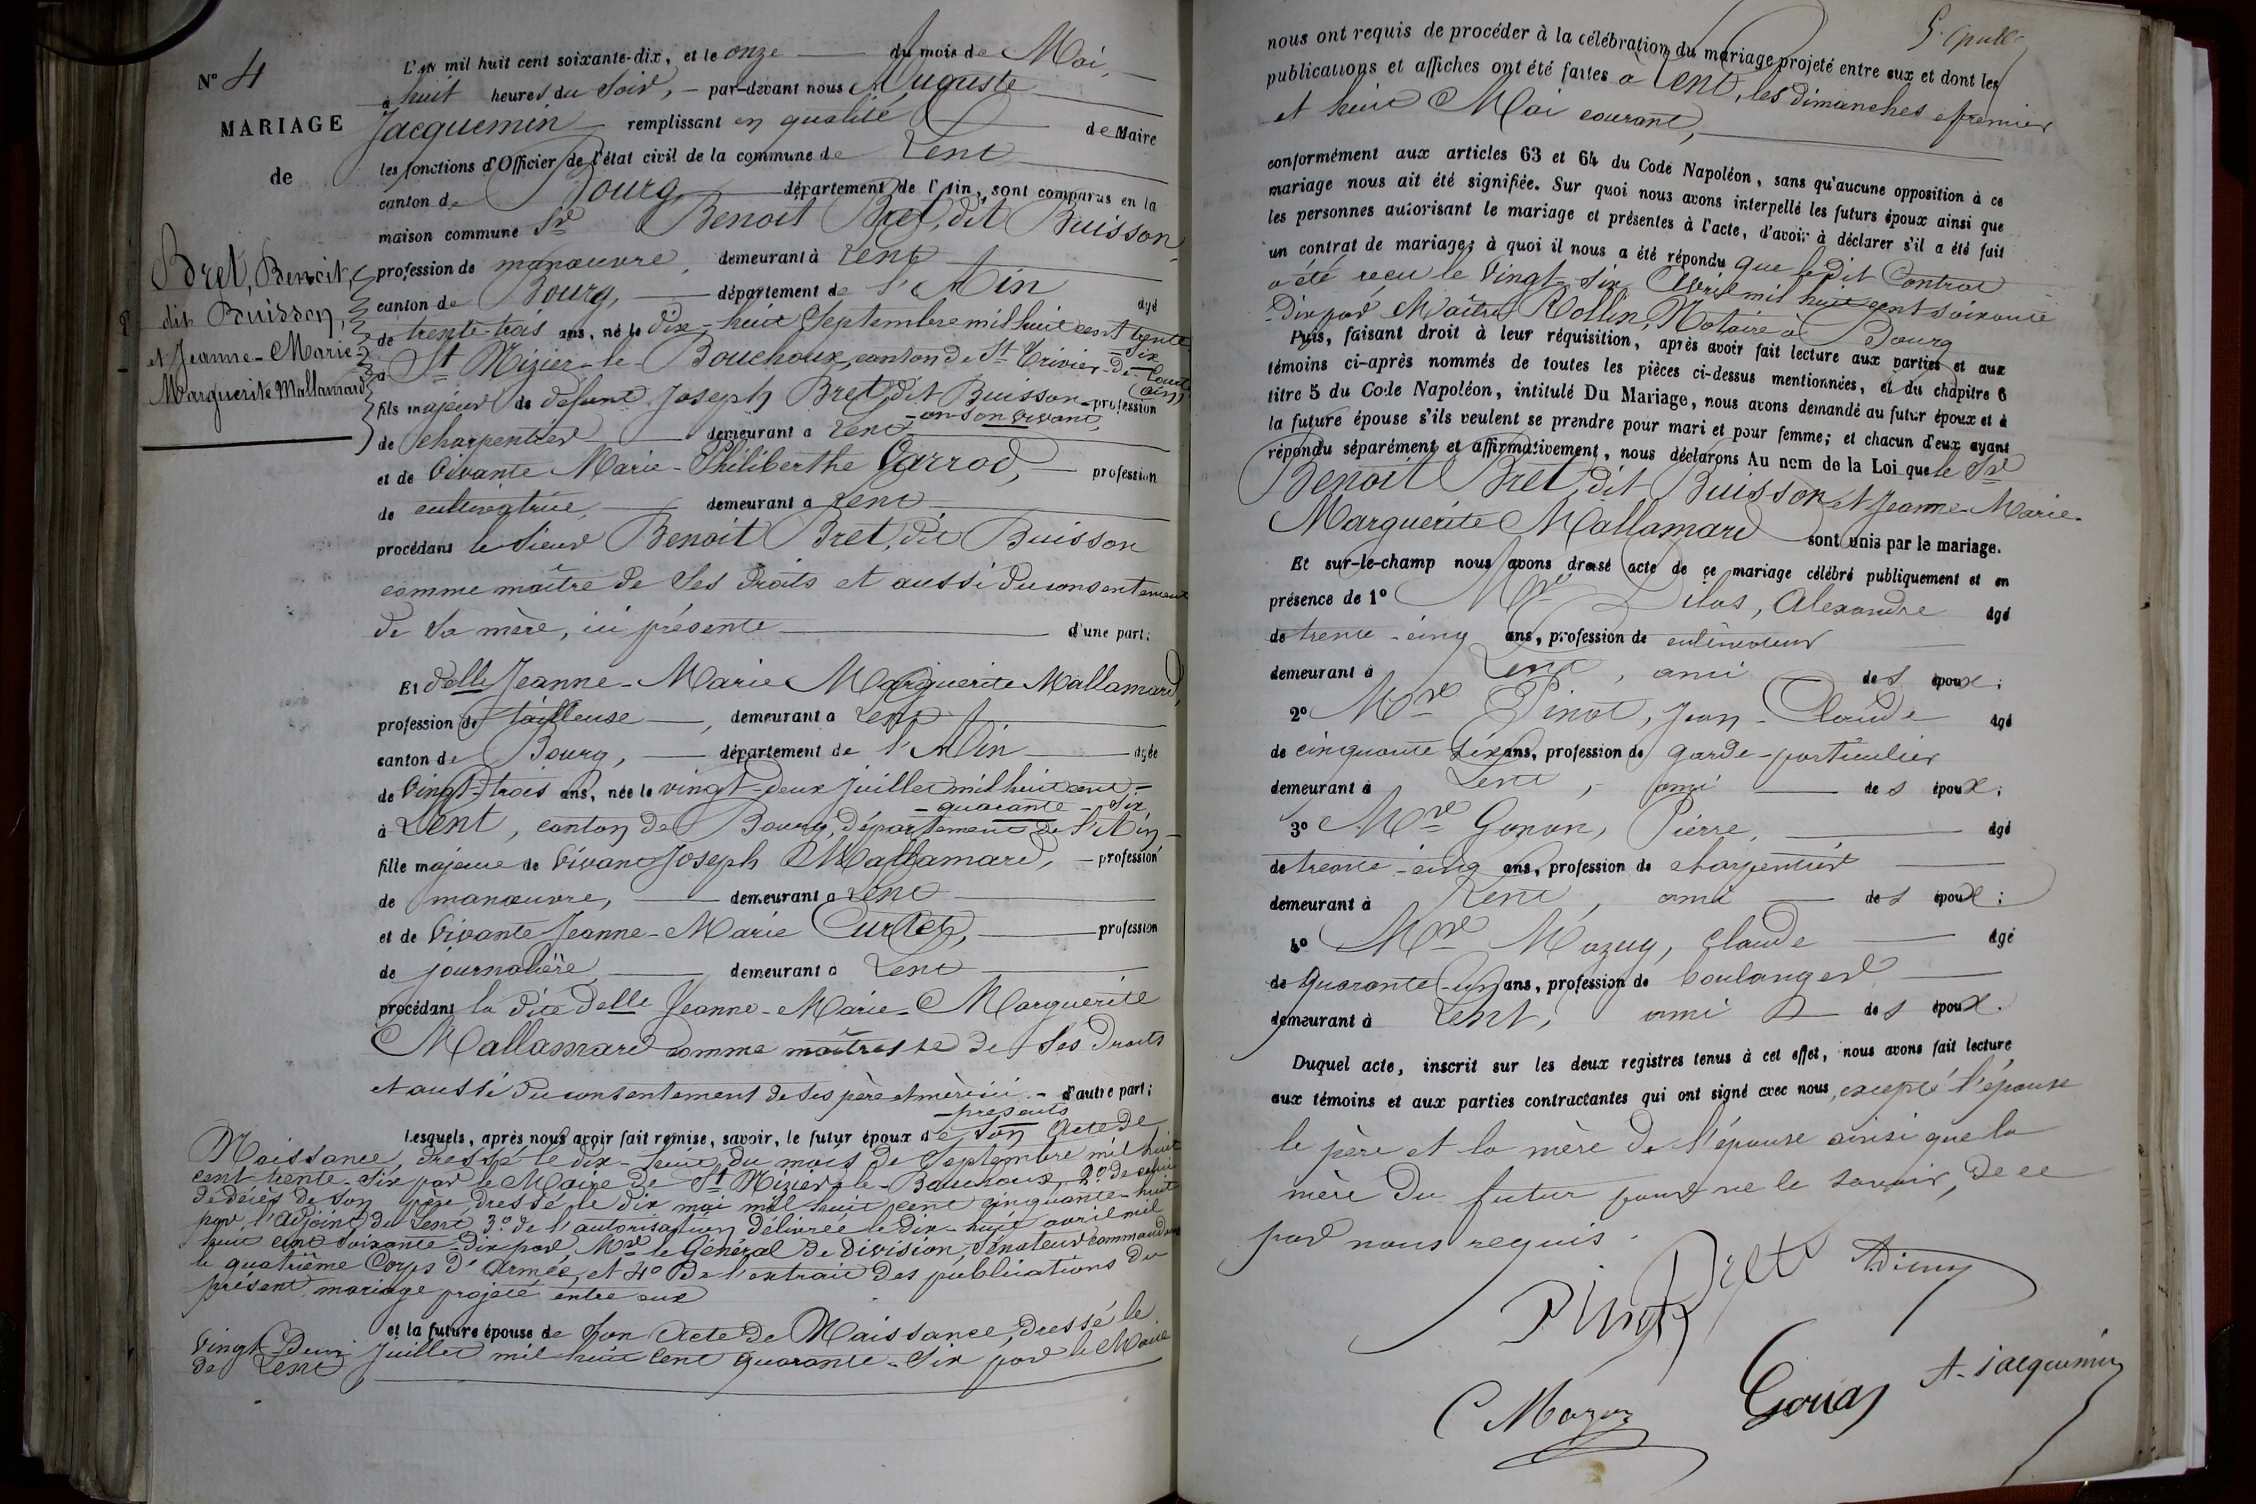 N° 4
MARIAGE
de
Bret, Benoit,
dit Buisson,
et Jeanne-Marie-
Marguerite Mallamard
L'an mil huit cent soixante-dix, et le onze du mois de Mai,
à huit heures du soir, par-devant nous Auguste
Jacquemin remplissant en qualité de Maire
les fonctions d'Officier de l'état civil de la commune de Lent
canton de Bourg département de l'Ain, sont comparus en la
maison commune Sr Benoit Bret, dit Buisson
profession de manœuvre, demeurant à Lent
canton de Bourg, département de l'Ain âgé
de trente-trois ans, né le dix-huit Septembre mil huit cent trente
-six
à St Nizier-le-Bouchoux, canton de St Trivier-de-Courtes
(Ain)
fils majeur de défunt Joseph Bret, dit Buisson profession
-en son vivant
de charpentier demeurant à Lent
et de vivante Marie-Philiberthe Varrod, profession
de cultivatrice, demeurant à Lent
procédant le sieur Benoit Bret, dit Buisson
comme maître de ses droits et aussi du consentement
de sa mère, ici présente d'une part;
Et Delle Jeanne-Marie Marguerite Mallamard,
profession de tailleuse, demeurant à Lent
canton de Bourg, département de l'Ain âgée
de vingt-trois ans, née le vingt-deux juillet mil huit cent
-quarante-six
à Lent, canton de Bourg, département de l'Ain
fille majeure de vivant Joseph Mallamard, profession
de manœuvre, demeurant à Lent
et de vivante Jeanne-Marie Curtet, profession
de journalière demeurant à Lent
procédant la dite Delle Jeanne-Marie-Marguerite
Mallamard comme maîtresse de ses droits
et aussi du consentement de ses père et mère ici d'autre part;
-présents
Lesquels, après nous avoir fait remise, savoir, le futur époux de son acte de
Naissance, dressé le dix-huit du mois de Septembre mil huit
cent trente-six par le Maire de St Nizier-le-Bouchoux, 2° de celui
de décès de son père, dressé le dix mai mil huit cent cinquante-huit
par l'adjoint de Lent, 3° de l'autorisation délivrée le dix-huit avril mil
huit cent soixante-dix par Mr le Général de Division, Sénateur commandant
le quatrième Corps d'Armée, et 4° de l'extrait des publications du
présent mariage projeté entre eux
et la future épouse de son acte de Naissance, dressé le
vingt-deux juillet mil huit cent quarante-six par le Maire
de Lent
nous ont requis de procéder à la célébration du mariage projeté entre eux et dont les
publications et affiches ont été faites à Lent, les dimanches premier
et huit Mai courant,
conformément aux articles 63 et 64 du Code Napoléon, sans qu'aucune opposition à ce
mariage nous ait été signifiée. Sur quoi nous avons interpellé les futurs époux ainsi que
les personnes autorisant le mariage et présentes à l'acte, d'avoir à déclarer s'il a été fait
un contrat de mariage; à quoi il nous a été répondu que ledit Contrat
a été reçu le vingt-six Avril mil huit cent soixante
-dix par Maître Rollin, Notaire à Bourg
Puis, faisant droit à leur réquisition, après avoir fait lecture aux parties et aux
témoins ci-après nommés de toutes les pièces ci-dessus mentionnées, et du chapitre 6
titre 5 du Code Napoléon, intitulé Du Mariage, nous avons demandé au futur époux et à
la future épouse s'ils veulent se prendre pour mari et pour femme; et chacun d'eux ayant
répondu séparément et affirmativement, nous déclarons Au nom de la Loi que le Sr
Benoit Bret, dit Buisson et Jeanne-Marie-
Marguerite Mallamard sont unis par le mariage.
Et sur-le-champ nous avons dressé acte de ce mariage célébré publiquement et en
présence de 1° Mr Alexandre âgé
de trente-cinq ans, profession de cultivateur
demeurant à Lent, ami des époux;
2° Mr Pinot, Jean-Claude âgé
de cinquante six ans, profession de garde-particulier
demeurant à Lent, ami des époux;
3° Mr Gonon, Pierre, âgé
de trente-cinq ans, profession de charpentier
demeurant à Lent, ami des époux;
4° Mr Mazuy, Claude âgé
de quarante-un ans, profession de boulanger
demeurant à Lent, ami des époux.
Duquel acte, inscrit sur les deux registres tenus à cet effet, nous avons fait lecture
aux témoins et aux parties contractantes qui ont signé avec nous, excepté l'épouse
le père et la mère de l'épouse ainsi que la
mère du futur pour ne le savoir, de ce
par nous requis.
Pinot
C Mazuy
A. Jacquemin